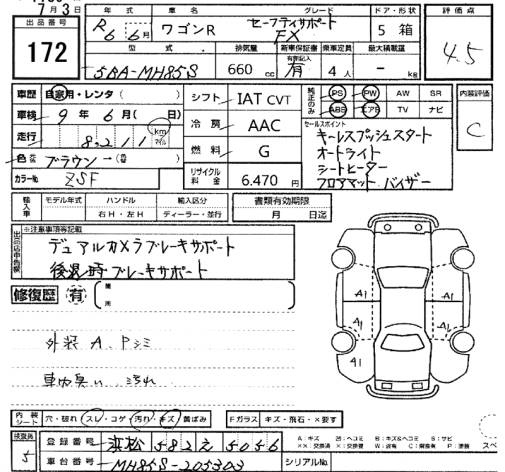 7月3日
出品番号
172
年式 車名 グレード ドア・形状
R6 6月 ワゴンR セーフティサポート FX 5 箱
評価点
4.5
型式 排気量 新車保証書 乗車定員 最大積載量
有無記入
5BA-MH85S 660cc 有 4人 - kg
車歴 自家用・レンタ( )
車検 9年 6月( 日)
走行 8,211 km マイル
色 ブラウン→( )
カラーNo ZSF
シフト IAT CVT
冷房 AAC
燃料 G
リサイクル料金 6,470円
純正のみ
PS PW AW SR
ABS エアB TV ナビ
内装評価
C
セールスポイント
キーレスプッシュスタート
オートライト
シートヒーター
フロアマット バイザー
輸入車 モデル年式 ハンドル 輸入区分
年 右H・左H ディーラー・並行
書類有効期限
月 日迄
出品店申告欄
※注意事項等記載
デュアルカメラブレーキサポート
後退時ブレーキサポート
修復歴 有 ( 箇所 )
A1 A1
A1 A1
A1
外装 A、Pシミ
車内臭い 汚れ
内装シート 穴・破れ スレ・コゲ 汚れ・キズ 黄ばみ
Fガラス キズ・飛石・×要す
検査員
5
登録番号 浜松 582 え 5056
車台番号 MH85S-205303
シリアルNo.
A:キズ U:ヘコミ B:キズ&ヘコミ S:サビ
XX:交換済 X:交換要 W:波有 C:腐蝕有 P:塗装